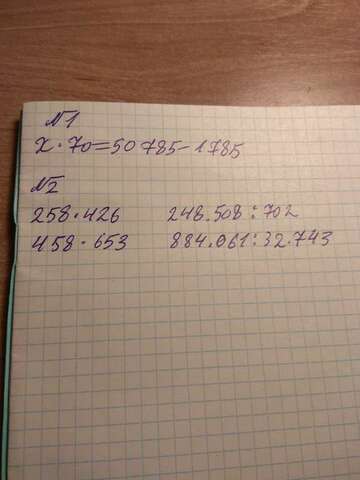 №1
x·70=50 785-1785
№2
258·426 248.508:702
458·653 884.061:32.743